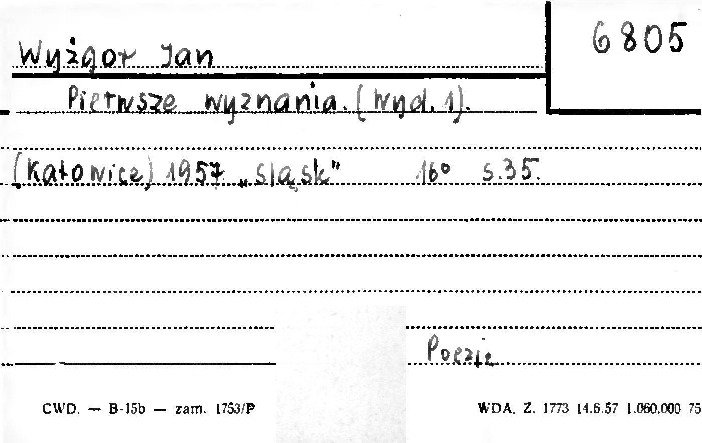 6805
Wyżgoł Jan
Pierwsze wyznania. (Wyd. 1).
(Katowice) 1957 „Śląsk" 16° s.35.
Poezje
CWD. — B-15b — zam. 1753/P
WDA. Z. 1773 14.6.57 1.060.000 75